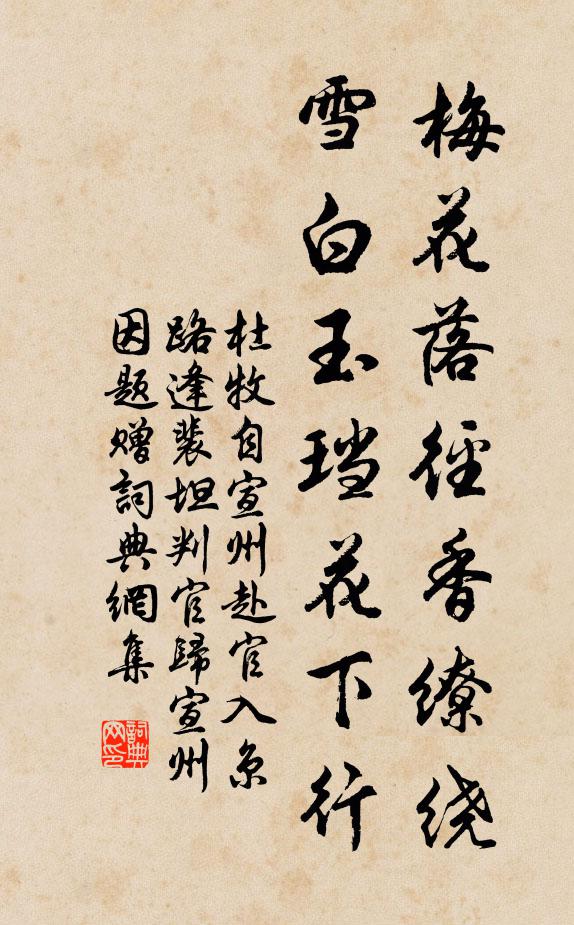 梅花落径香缭绕
雪白玉珰花下行
杜牧自宣州赴官入京
路逢裴坦判官歸宣州
因題贈詞典網集
詞典
网印